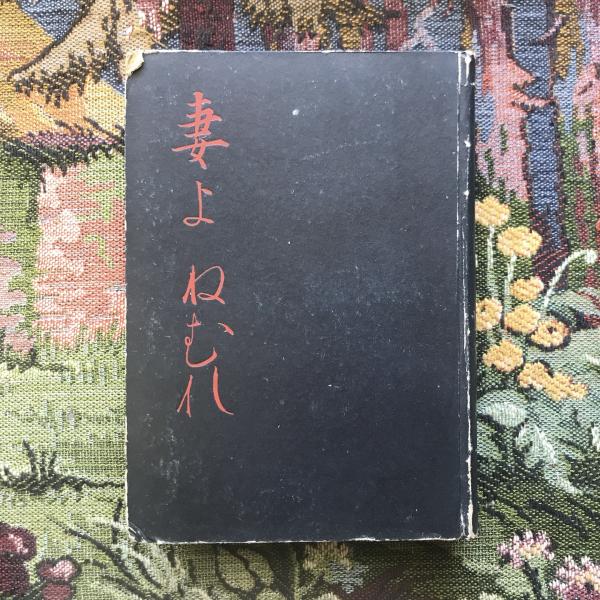 妻よ ねむれ